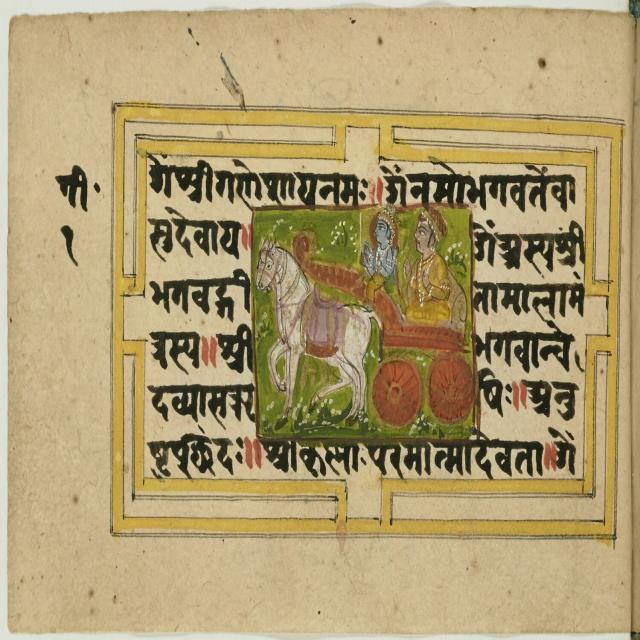 गी॰
१
ॐश्रीगणेशायनमः॥ॐनमोभगवतेवा
सुदेवाय॥ॐअस्यश्री
भगवद्गीतामालामं
त्रस्य॥श्रीभगवान्वे
दव्यासऋषिः॥अनु
ष्टुप्छंदः॥श्रीकृष्णःपरमात्मादेवता॥ॐ